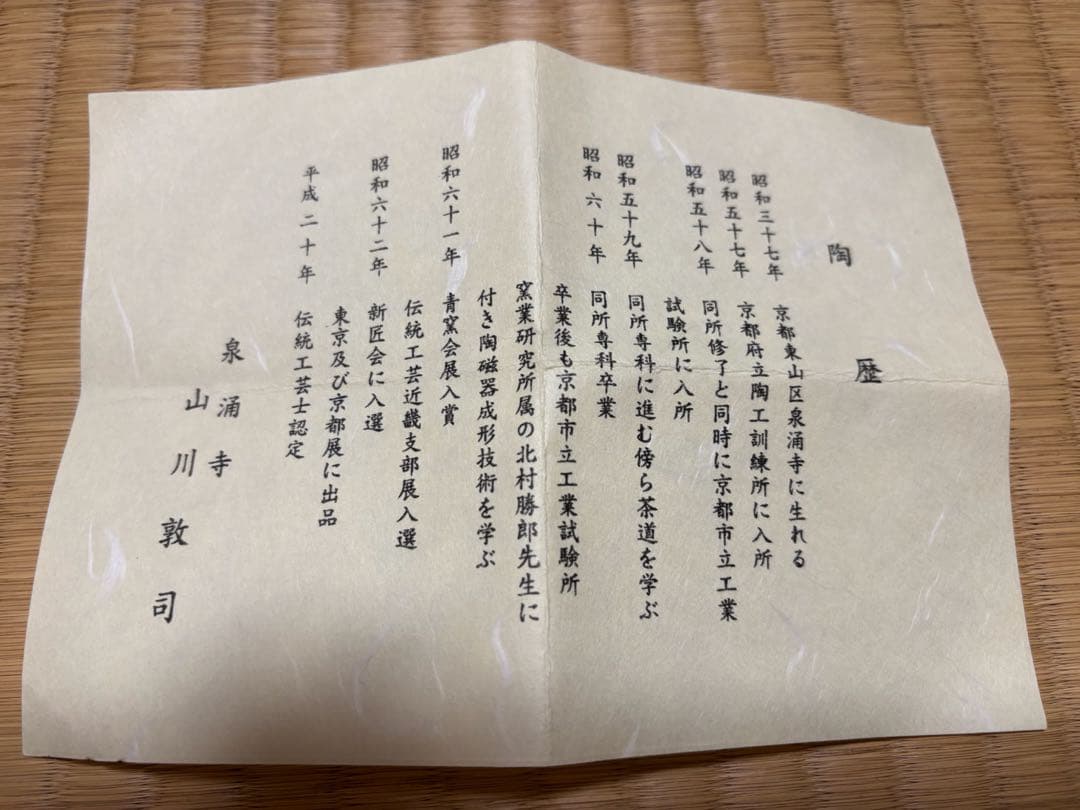 陶歴
昭和三十七年 京都東山区泉涌寺に生れる
昭和五十七年 京都府立陶工訓練所に入所
昭和五十八年 同所修了と同時に京都市立工業
試験所に入所
昭和五十九年 同所専科に進む傍ら茶道を学ぶ
昭和六十年 同所専科卒業
卒業後も京都市立工業試験所
窯業研究所属の北村勝郎先生に
付き陶磁器成形技術を学ぶ
昭和六十一年 青窯会展入賞
伝統工芸近畿支部展入選
昭和六十二年 新匠会に入選
東京及び京都展に出品
平成二十年 伝統工芸士認定
泉涌寺
山川敦司